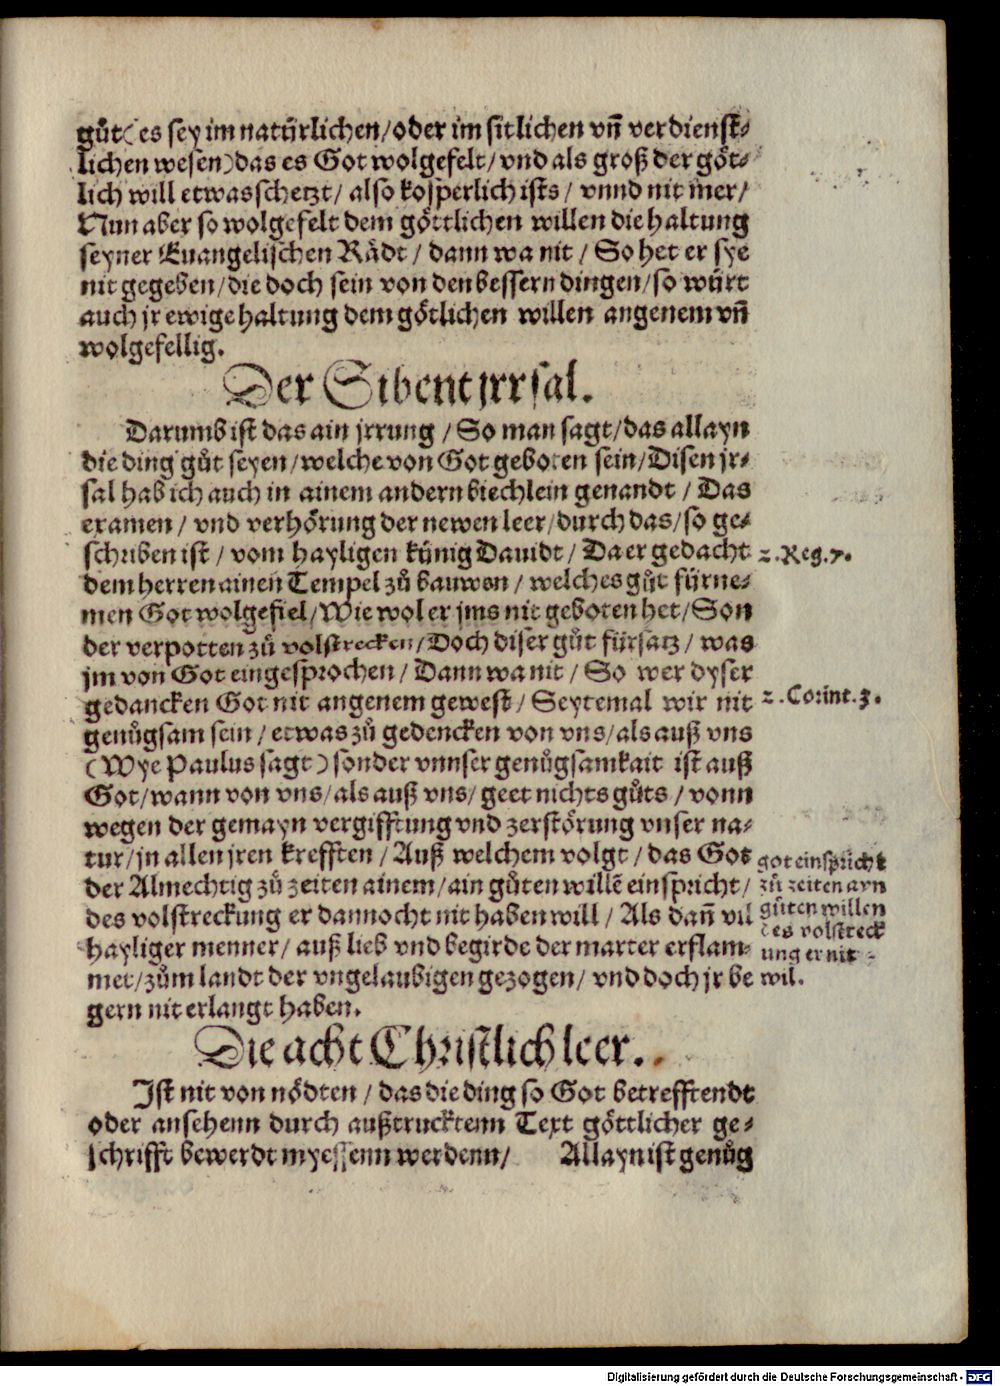 gůt(es sey im natürlichen/oder im sitlichen vñ verdienst⸗
lichen wesen)das es Got wolgefelt/vnd als groß der göt⸗
lich will etwas schetzt/also kosperlich ists/vnnd nit mer/
Nun aber so wolgefelt dem göttlichen willen die haltung
seyner Euangelischen Rädt/dann wa nit/So het er sye
nit gegeben/die doch sein von den bessern dingen/so würt
auch jr ewige haltung dem götlichen willen angenem vñ
wolgefellig.
Der Sibent jrrsal.
Darumb ist das ain jrrung/So man sagt/das allayn
die ding gůt seyen/welche von Got geboten sein/Disen jr⸗
sal hab ich auch in ainem andern biechlein genandt/Das
examen/vnd verhörung der newen leer/durch das/so ge⸗
schriben ist/vom hayligen künig Dauidt/Da er gedacht
2.Reg.7.
dem herren ainen Tempel zů bauwen/welches gůt fürne⸗
men Got wolgefiel/Wie wol er jms nit geboten het/Son
der verpotten zů volstrecken/Doch diser gůt fürsatz/was
jm von Got eingesprochen/Dann wa nit/So wer dyser
gedancken Got nit angenem gewest/Seytemal wir nit
2.Corint.3.
genůgsam sein/etwas zů gedencken von vns/als auß vns
(Wye Paulus sagt)sonder vnnser genůgsamkait ist auß
Got/wann von vns/als auß vns/geet nichts gůts/vonn
wegen der gemayn vergifftung vnd zerstörung vnser na⸗
tur/jn allen jren krefften/Auß welchem volgt/das Got
der Almechtig zů zeiten ainem/ain gůten willē einspricht/
des volstreckung er dannocht nit haben will/Als dañ vil
hayliger menner/auß lieb vnd begirde der marter erflam⸗
met/zům landt der vngelaubigen gezogen/vnd doch jr be
gern nit erlangt haben.
got einspricht
zů zeiten ayn
gůten willen
des volstreck
ung er nit
wil.
Die acht Christlich leer.
Ist nit von nödten/das die ding so Got betrefftendt
oder ansehenn durch außtrucktenn Text göttlicher ge⸗
schrifft bewerdt myessenn werdenn/ Allayn ist genůg
Digitalisierung gefördert durch die Deutsche Forschungsgemeinschaft - DFG